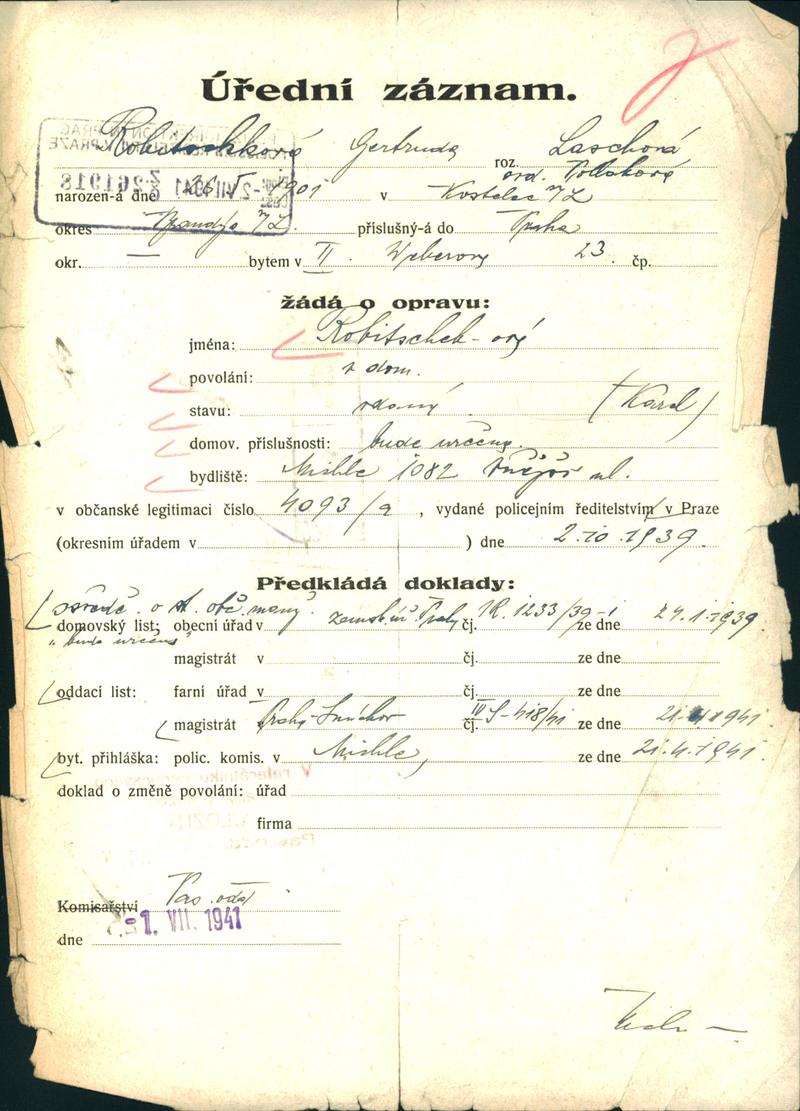 Úřední záznam.
Gertruda roz. Laschová
narozen-á dne 26. V. 1901 v Kostelec n/L
okres Brandýs n/L. příslušný-á do Praha
okr. — bytem v II. Weberova 23. čp.
žádá o opravu:
jména: Robitschek-ová
povolání: v dom.
stavu: vdaná (Karel)
domov. příslušnosti: bude určena.
bydliště: Michle 1082 ul.
v občanské legitimaci číslo 4093/a, vydané policejním ředitelstvím v Praze
(okresním úřadem v ) dne 2.10.1939.
Předkládá doklady:
o st. obč.
domovský list: obecní úřad v čj. 1R. 1233/39-1 ze dne 24.1.1939.
"bude určena"
magistrát v čj. ze dne
oddací list: farní úřad v čj. ze dne
magistrát Prahy-Smíchov čj. IV S-418/41 ze dne 1941
byt. přihláška: polic. komis. v Michle, ze dne 21.4.1941.
doklad o změně povolání: úřad
firma
Komisařství Pas. odd.
dne 1. VII. 1941